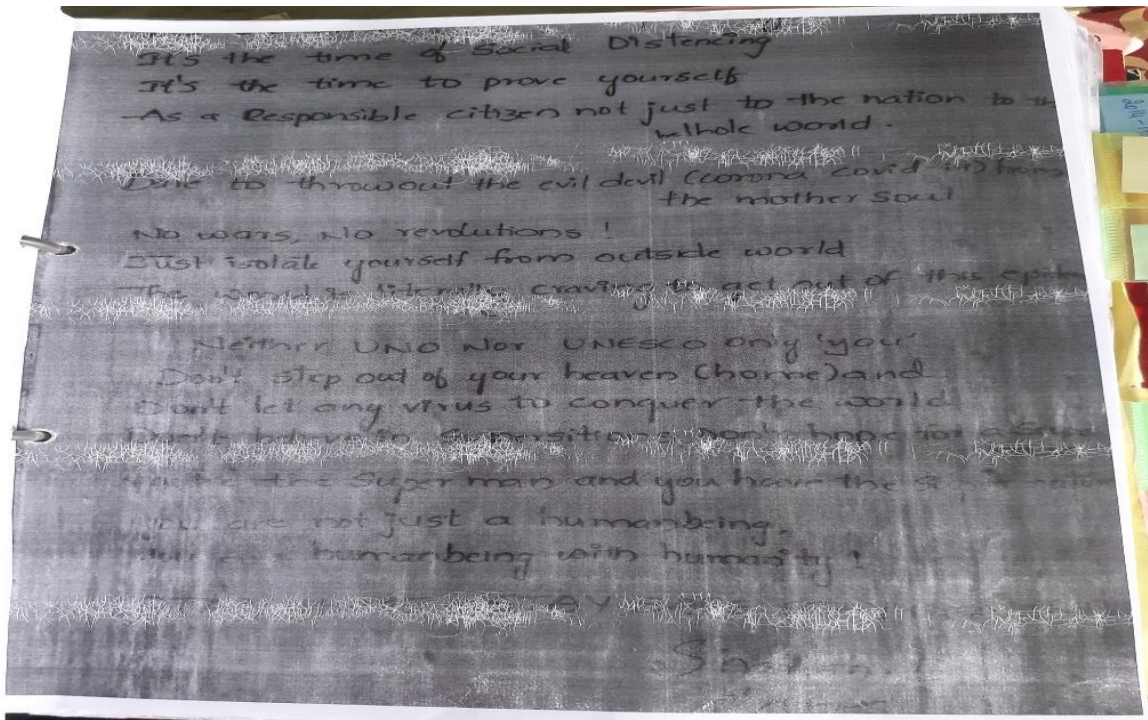 It's the time of Social Distencing
It's the time to prove yourself
As a Responsible citizen not just to the nation to the
whole world.
Dare to throwout the evil devil (corona covid-19) from
the mother Soul
No wars, No revolutions!
Just isolate yourself from outside world
The world is literally craving to get out of this
Neither UNO Nor UNESCO only 'you'
Don't step out of your heaven (home) and
Don't let any virus to conquer the world
Don't Supersitions, Don't hope for a
the Super man and you have the
you are not just a humanbeing,
humanbeing with humanity!
2014-1